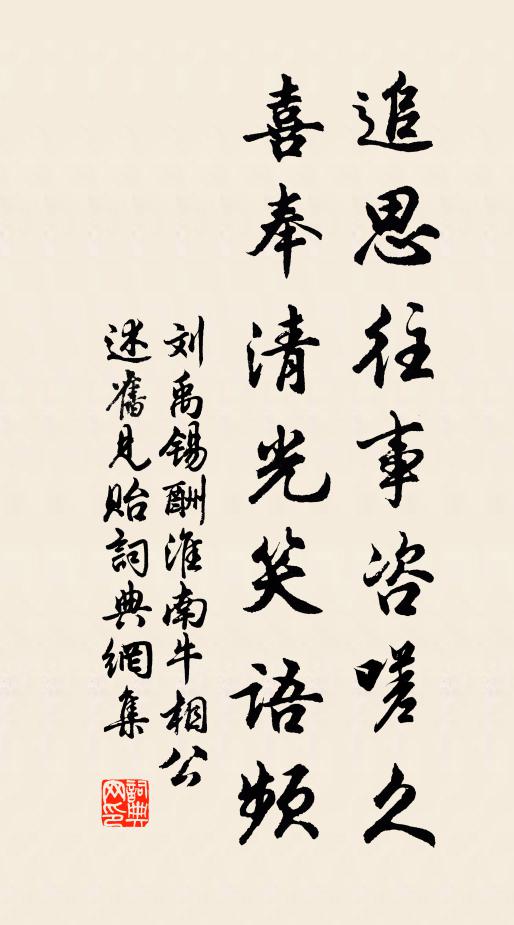 追思往事咨嗟久
喜奉清光笑语頻
刘禹锡酬淮南牛相公
述舊見貽詞典網集
詞典网印